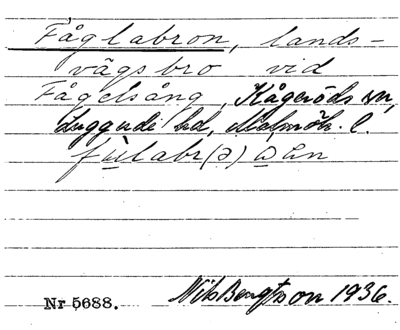 Fåglabron, lands-
vägsbro vid
Fågelsång, Kågeröds sn,
Luggude hd, Malmöh. l.
fùlabr(ə)
Nr 5688. Nils Bengtsson 1936.